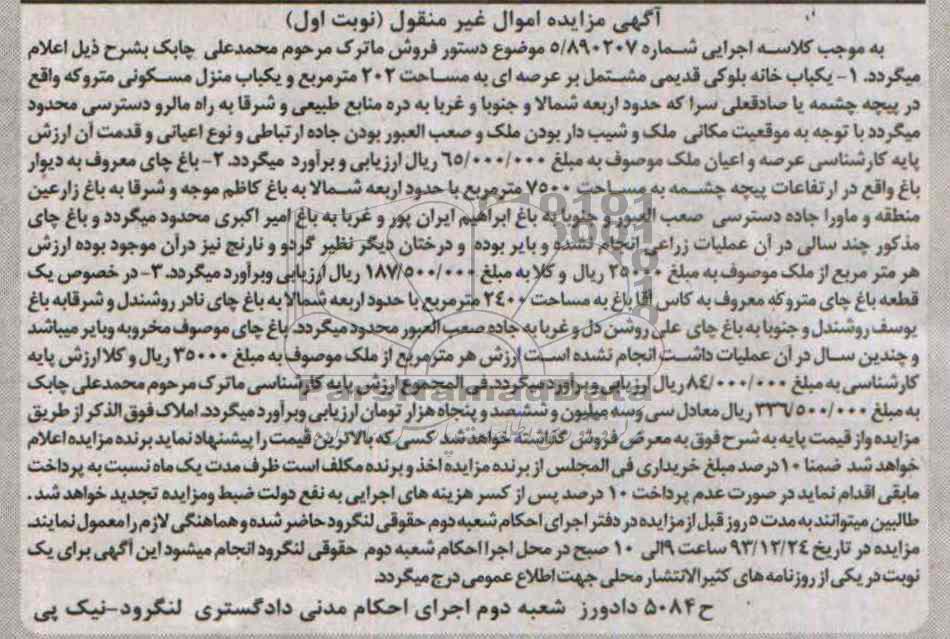 آگهی مزایده اموال غیر منقول (نوبت اول)
به موجب کلاسه اجرایی شماره ۵/۸۹۰۲۰۷ موضوع دستور فروش ماترک مرحوم محمدعلی چابک بشرح ذیل اعلام
میگردد. ۱- یکباب خانه بلوکی قدیمی مشتمل بر عرصه ای به مساحت ۲۰۲ مترمربع و یکباب منزل مسکونی متروکه واقع
در پیچه چشمه یا صادقعلی سرا که حدود اربعه شمالا و جنوبا و غربا به دره منابع طبیعی و شرقا به راه مالرو دسترسی محدود
میگردد با توجه به موقعیت مکانی ملک و شیب دار بودن ملک و صعب العبور بودن جاده ارتباطی و نوع اعیانی و قدمت آن ارزش
پایه کارشناسی عرصه و اعیان ملک موصوف به مبلغ ۶۵/۰۰۰/۰۰۰ ریال ارزیابی و برآورد میگردد. ۲- باغ چای معروف به دیوار
باغ واقع در ارتفاعات پیچه چشمه به مساحت ۷۵۰۰ مترمربع با حدود اربعه شمالا به باغ کاظم موجه و شرقا به باغ زارعین
منطقه و ماورا جاده دسترسی صعب العبور و جنوبا به باغ ابراهیم ایران پور و غربا به باغ امیر اکبری محدود میگردد و باغ چای
مذکور چند سالی در آن عملیات زراعی انجام نشده و بایر بوده و درختان دیگر نظیر گردو و نارنج نیز درآن موجود بوده ارزش
هر متر مربع از ملک موصوف به مبلغ ۲۵۰۰۰ ریال و کلا به مبلغ ۱۸۷/۵۰۰/۰۰۰ ریال ارزیابی وبرآورد میگردد. ۳- در خصوص یک
قطعه باغ چای متروکه معروف به کاس آقا باغ به مساحت ۲۴۰۰ مترمربع با حدود اربعه شمالا به باغ چای نادر روشندل و شرقابه باغ
یوسف روشندل و جنوبا به باغ چای علی روشن دل و غربا به جاده صعب العبور محدود میگردد. باغ چای موصوف مخروبه وبایر میباشد
و چندین سال در آن عملیات داشت انجام نشده است ارزش هر مترمربع از ملک موصوف به مبلغ ۳۵۰۰۰ ریال و کلا ارزش پایه
کارشناسی به مبلغ ۸۴/۰۰۰/۰۰۰ ریال ارزیابی و برآورد میگردد. فی المجموع ارزش پایه کارشناسی ماترک مرحوم محمدعلی چابک
به مبلغ ۳۳۶/۵۰۰/۰۰۰ ریال معادل سی و سه میلیون و ششصد و پنجاه هزار تومان ارزیابی وبرآورد میگردد. املاک فوق الذکر از طریق
مزایده واز قیمت پایه به شرح فوق به معرض فروش گذاشته خواهد شد کسی که بالاترین قیمت را پیشنهاد نماید برنده مزایده اعلام
خواهد شد ضمنا ۱۰درصد مبلغ خریداری فی المجلس از برنده مزایده اخذ و برنده مکلف است ظرف مدت یک ماه نسبت به پرداخت
مابقی اقدام نماید در صورت عدم پرداخت ۱۰ درصد پس از کسر هزینه های اجرایی به نفع دولت ضبط ومزایده تجدید خواهد شد.
طالبین میتوانند به مدت ۵ روز قبل از مزایده در دفتر اجرای احکام شعبه دوم حقوقی لنگرود حاضر شده و هماهنگی لازم را معمول نمایند.
مزایده در تاریخ ۹۳/۱۲/۲۴ ساعت ۹الی ۱۰ صبح در محل اجرا احکام شعبه دوم حقوقی لنگرود انجام میشود این آگهی برای یک
نوبت در یکی از روزنامه های کثیرالانتشار محلی جهت اطلاع عمومی درج میگردد.
ح۵۰۸۴ دادورز شعبه دوم اجرای احکام مدنی دادگستری لنگرود-نیک پی
ParsNamadData